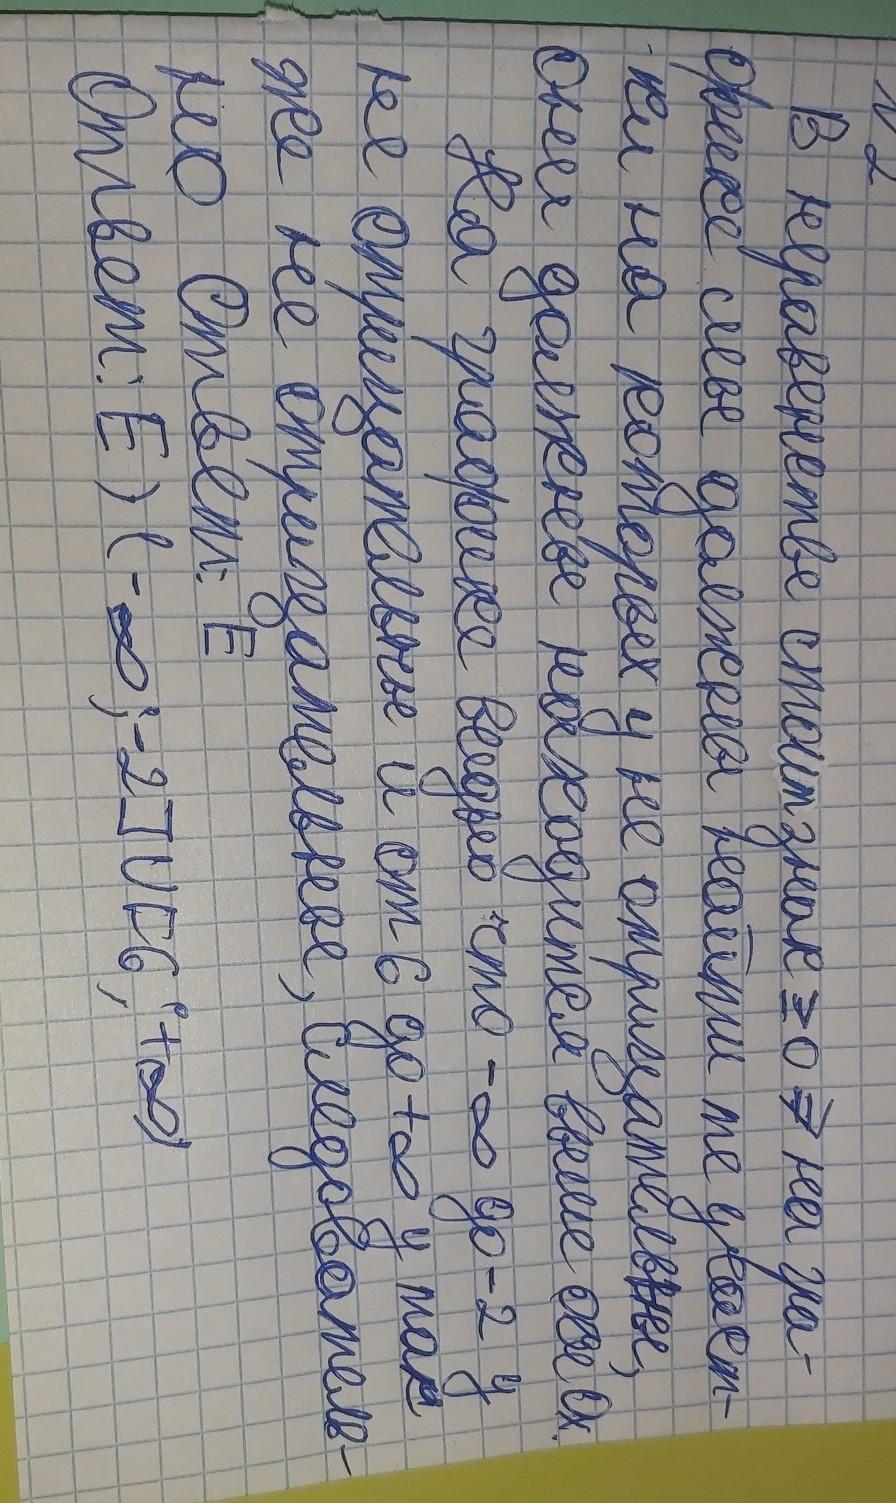 №2
В неравенстве стоит знак ≥0 ⇒ на гра-
фике мы должны найти те участ-
ки на которых y не отрицательны,
они должны находится выше оси Ox.
На графике видно что -∞ до -2 y
не отрицательные и от 6 до +∞ y так
же не отрицательное, следователь-
но Ответ: E
Ответ: E) (-∞; -2] ∪ [6; +∞)